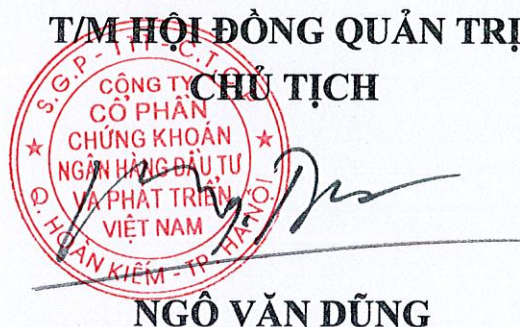 T/M HỘI ĐỒNG QUẢN TRỊ
CHỦ TỊCH
CÔNG TY
CỔ PHẦN
CHỨNG KHOÁN
NGÂN HÀNG ĐẦU TƯ
VÀ PHÁT TRIỂN
VIỆT NAM
Q. HOÀN KIẾM - TP. HÀ NỘI
NGÔ VĂN DŨNG